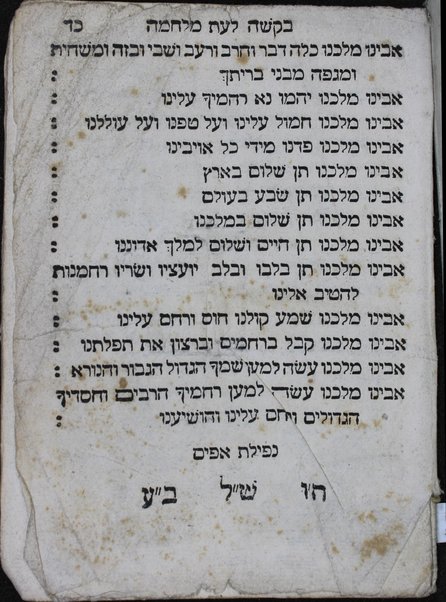 בקשה לעת מלחמה כד
אבינו מלכנו כלה דבר וחרב ורעב ושבי ובזה ומשחית
ומגפה מבני בריתך :
אבינו מלכנו יהמו נא רחמיך עלינו :
אבינו מלכנו חמול עלינו ועל טפנו ועל עוללנו :
אבינו מלכנו פדנו מידי כל אויבינו :
אבינו מלכנו תן שלום בארץ :
אבינו מלכנו תן שבע בעולם :
אבינו מלכנו תן שלום במלכנו :
אבינו מלכנו תן חיים ושלום למלך אדיננו :
אבינו מלכנו תן בלבו ובלב יועציו ושריו רחמנות
להטיב אלינו :
אבינו מלכנו שמע קולנו חוס ורחם עלינו :
אבינו מלכנו קבל ברחמים וברצון את תפלתנו :
אבינו מלכנו עשה למען שמך הגדול הגבור והנורא :
אבינו מלכנו עשה למען רחמיך הרבים וחסדיך
הגדולים ורחם עלינו והושיענו :
נפילת אפים
ה"ו ש"ל ב"ע